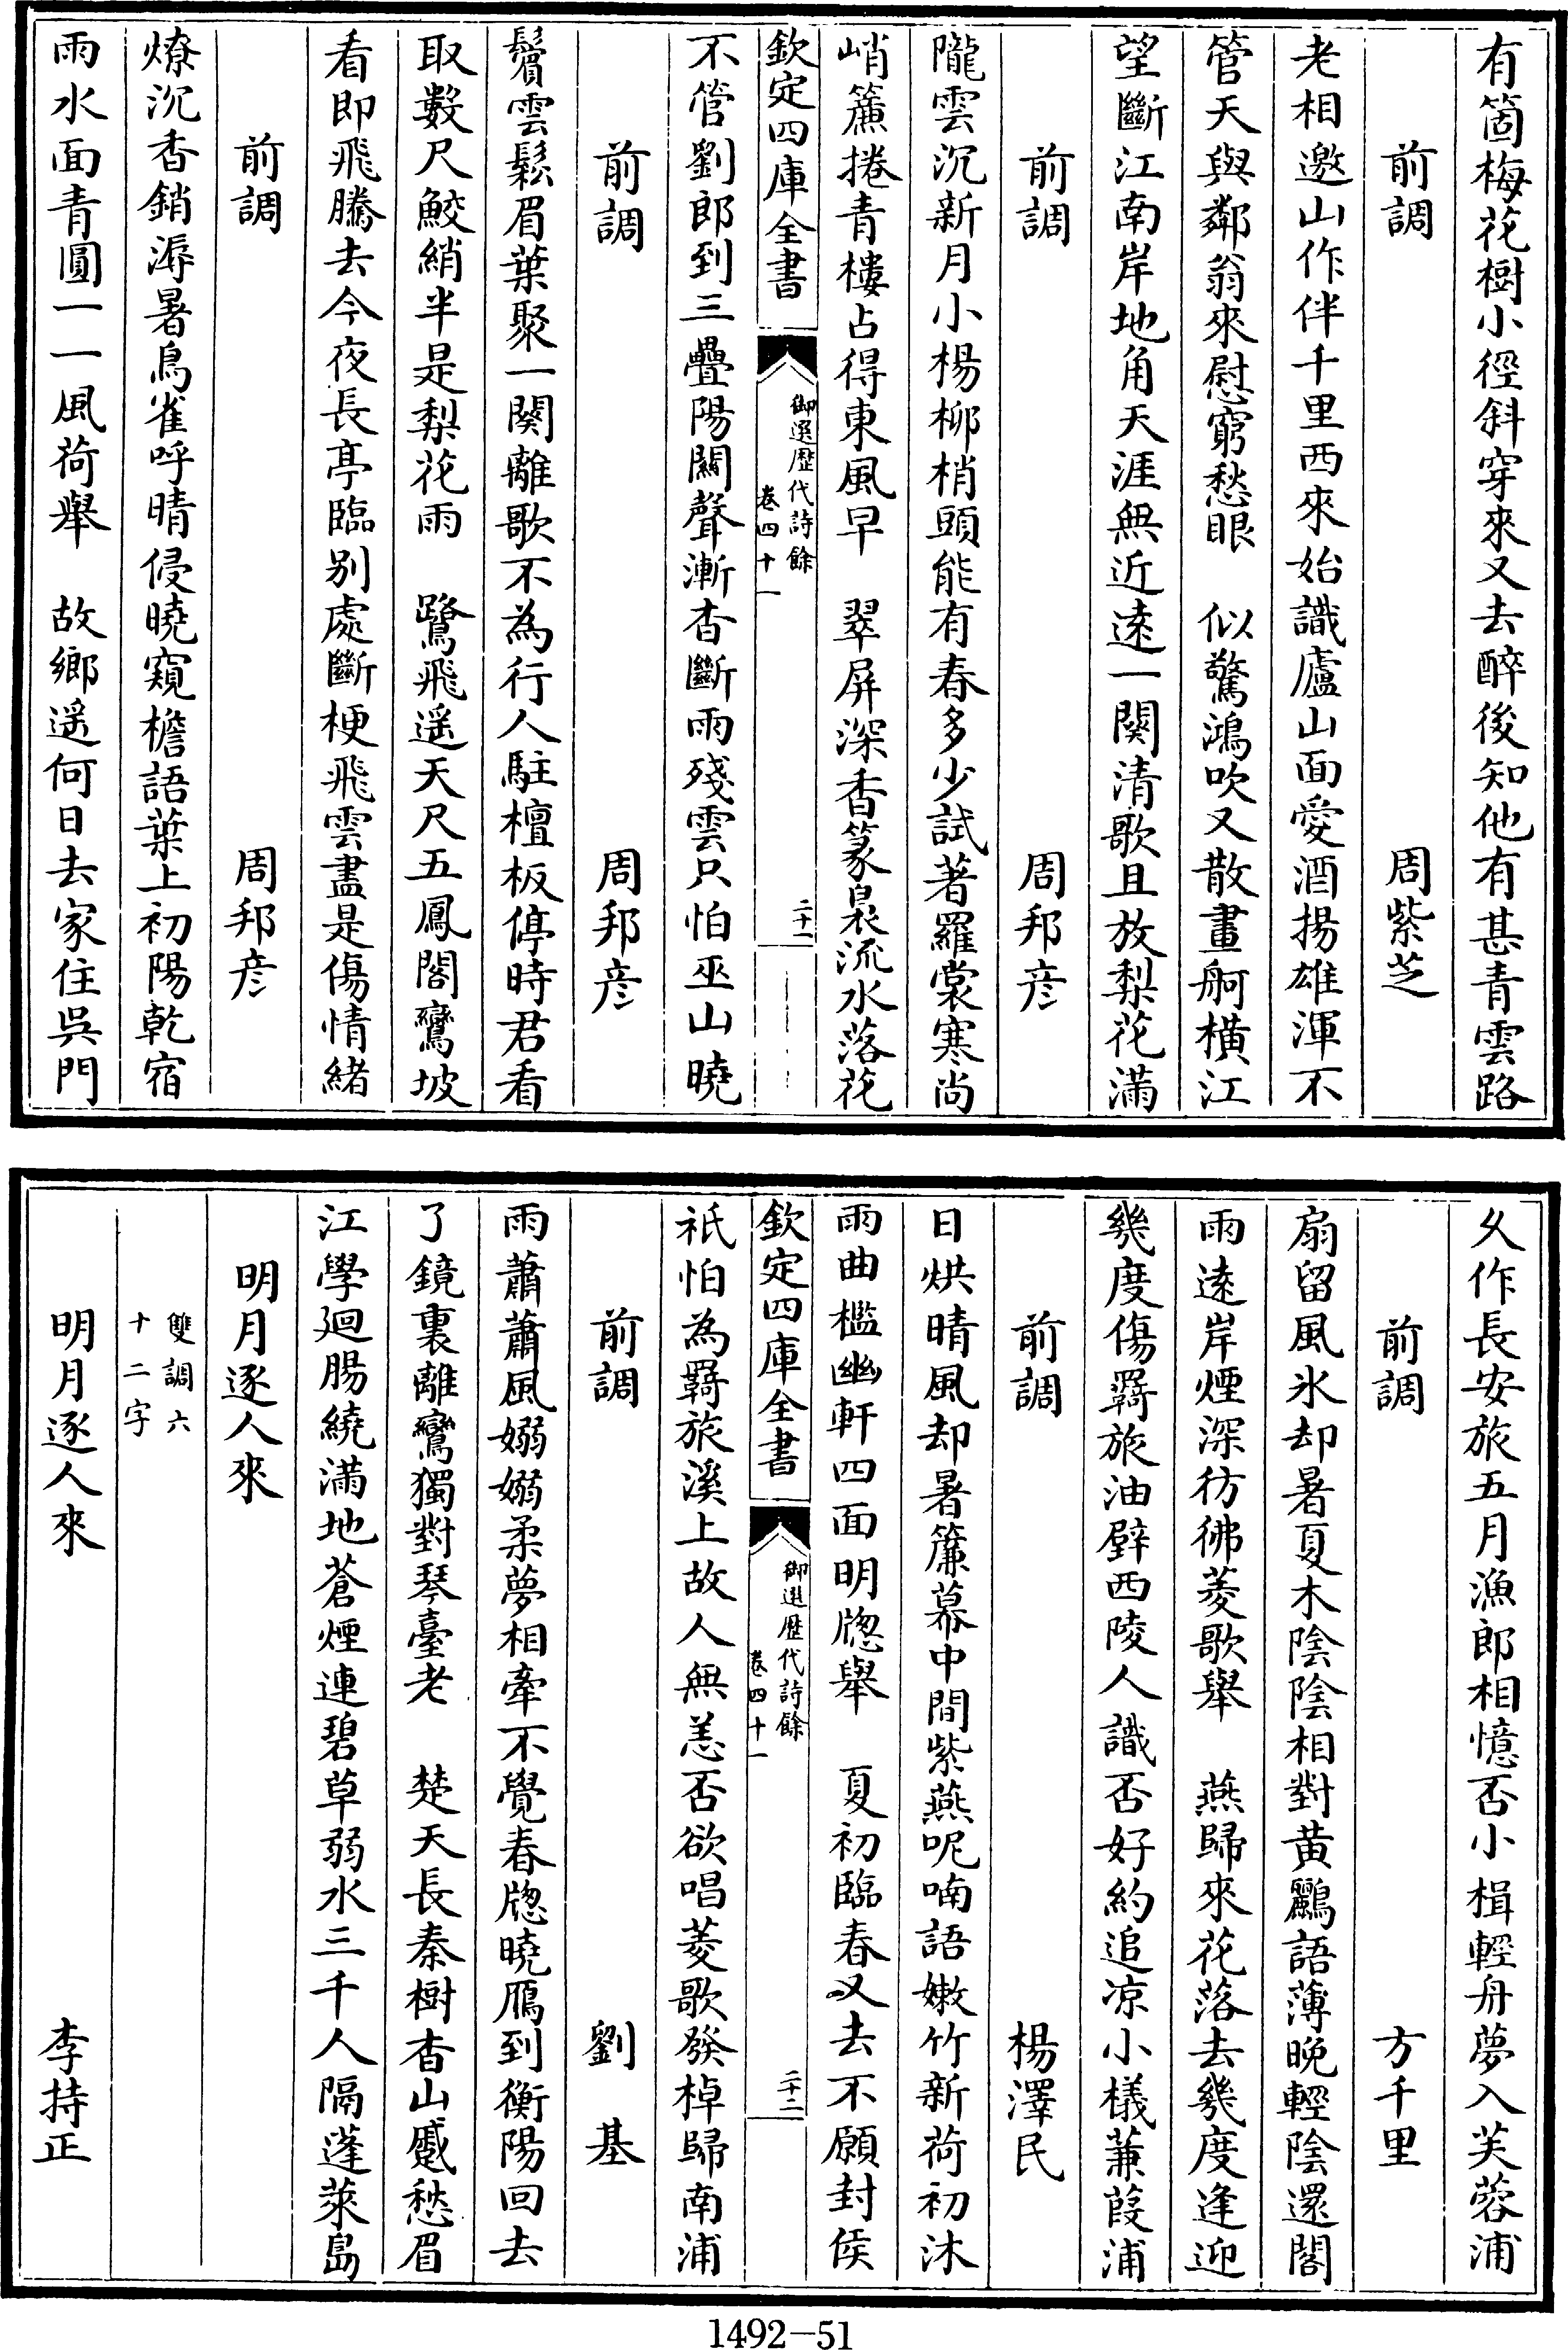 有箇梅花樹小徑斜穿來又去醉後知他有甚青雲路
前調　周紫芝
老相邀山作伴千里西來始識廬山面愛酒揚雄渾不
管天與鄰翁來慰窮愁眼　似驚鴻吹又散畫舸橫江
望斷江南岸地角天涯無近遠一闋清歌且放梨花滿
前調　周邦彦
隴雲沉新月小楊柳梢頭能有春多少試著羅裳寒尚
峭簾捲青樓占得東風早　翠屏深香篆裊流水落花
欽定四庫全書　御選歷代詩餘　卷四十一　二十一
不管劉郎到三疊陽關聲漸杳斷雨殘雲只怕巫山曉
前調　周邦彦
鬢雲鬆眉葉聚一闋離歌不為行人駐檀板停時君看
取數尺鮫綃半是梨花雨　鷺飛遥天尺五鳳閣鸞坡
看即飛騰去今夜長亭臨别處斷梗飛雲盡是傷情緒
前調　周邦彦
燎沉香銷溽暑鳥雀呼晴侵曉窺檐語葉上初陽乾宿
雨水面青圓一一風荷舉　故鄉遥何日去家住呉門
久作長安旅五月漁郎相憶否小楫輕舟夢入芙蓉浦
前調　方千里
扇留風氷却暑夏木陰陰相對黄鸝語薄晚輕陰還閣
雨逺岸煙深彷彿菱歌舉　燕歸來花落去幾度逢迎
幾度傷羇旅油壁西陵人識否好約追凉小檥蒹葭浦
前調　楊澤民
日烘晴風却暑簾幕中間紫燕呢喃語嫩竹新荷初沐
雨曲檻幽軒四面明牕舉　夏初臨春又去不願封侯
欽定四庫全書　御選歷代詩餘　卷四十一　二十二
祇怕為羇旅溪上故人無恙否欲唱菱歌發棹歸南浦
前調　劉基
雨蕭蕭風嫋嫋柔夢相牽不覺春牕曉鴈到衡陽回去
了鏡裏離鸞獨對琴臺老　楚天長秦樹杳山蹙愁眉
江學廻腸繞滿地蒼煙連碧草弱水三千人隔蓬萊島
明月逐人來
雙調六
十二字
明月逐人來　李持正
1492-51